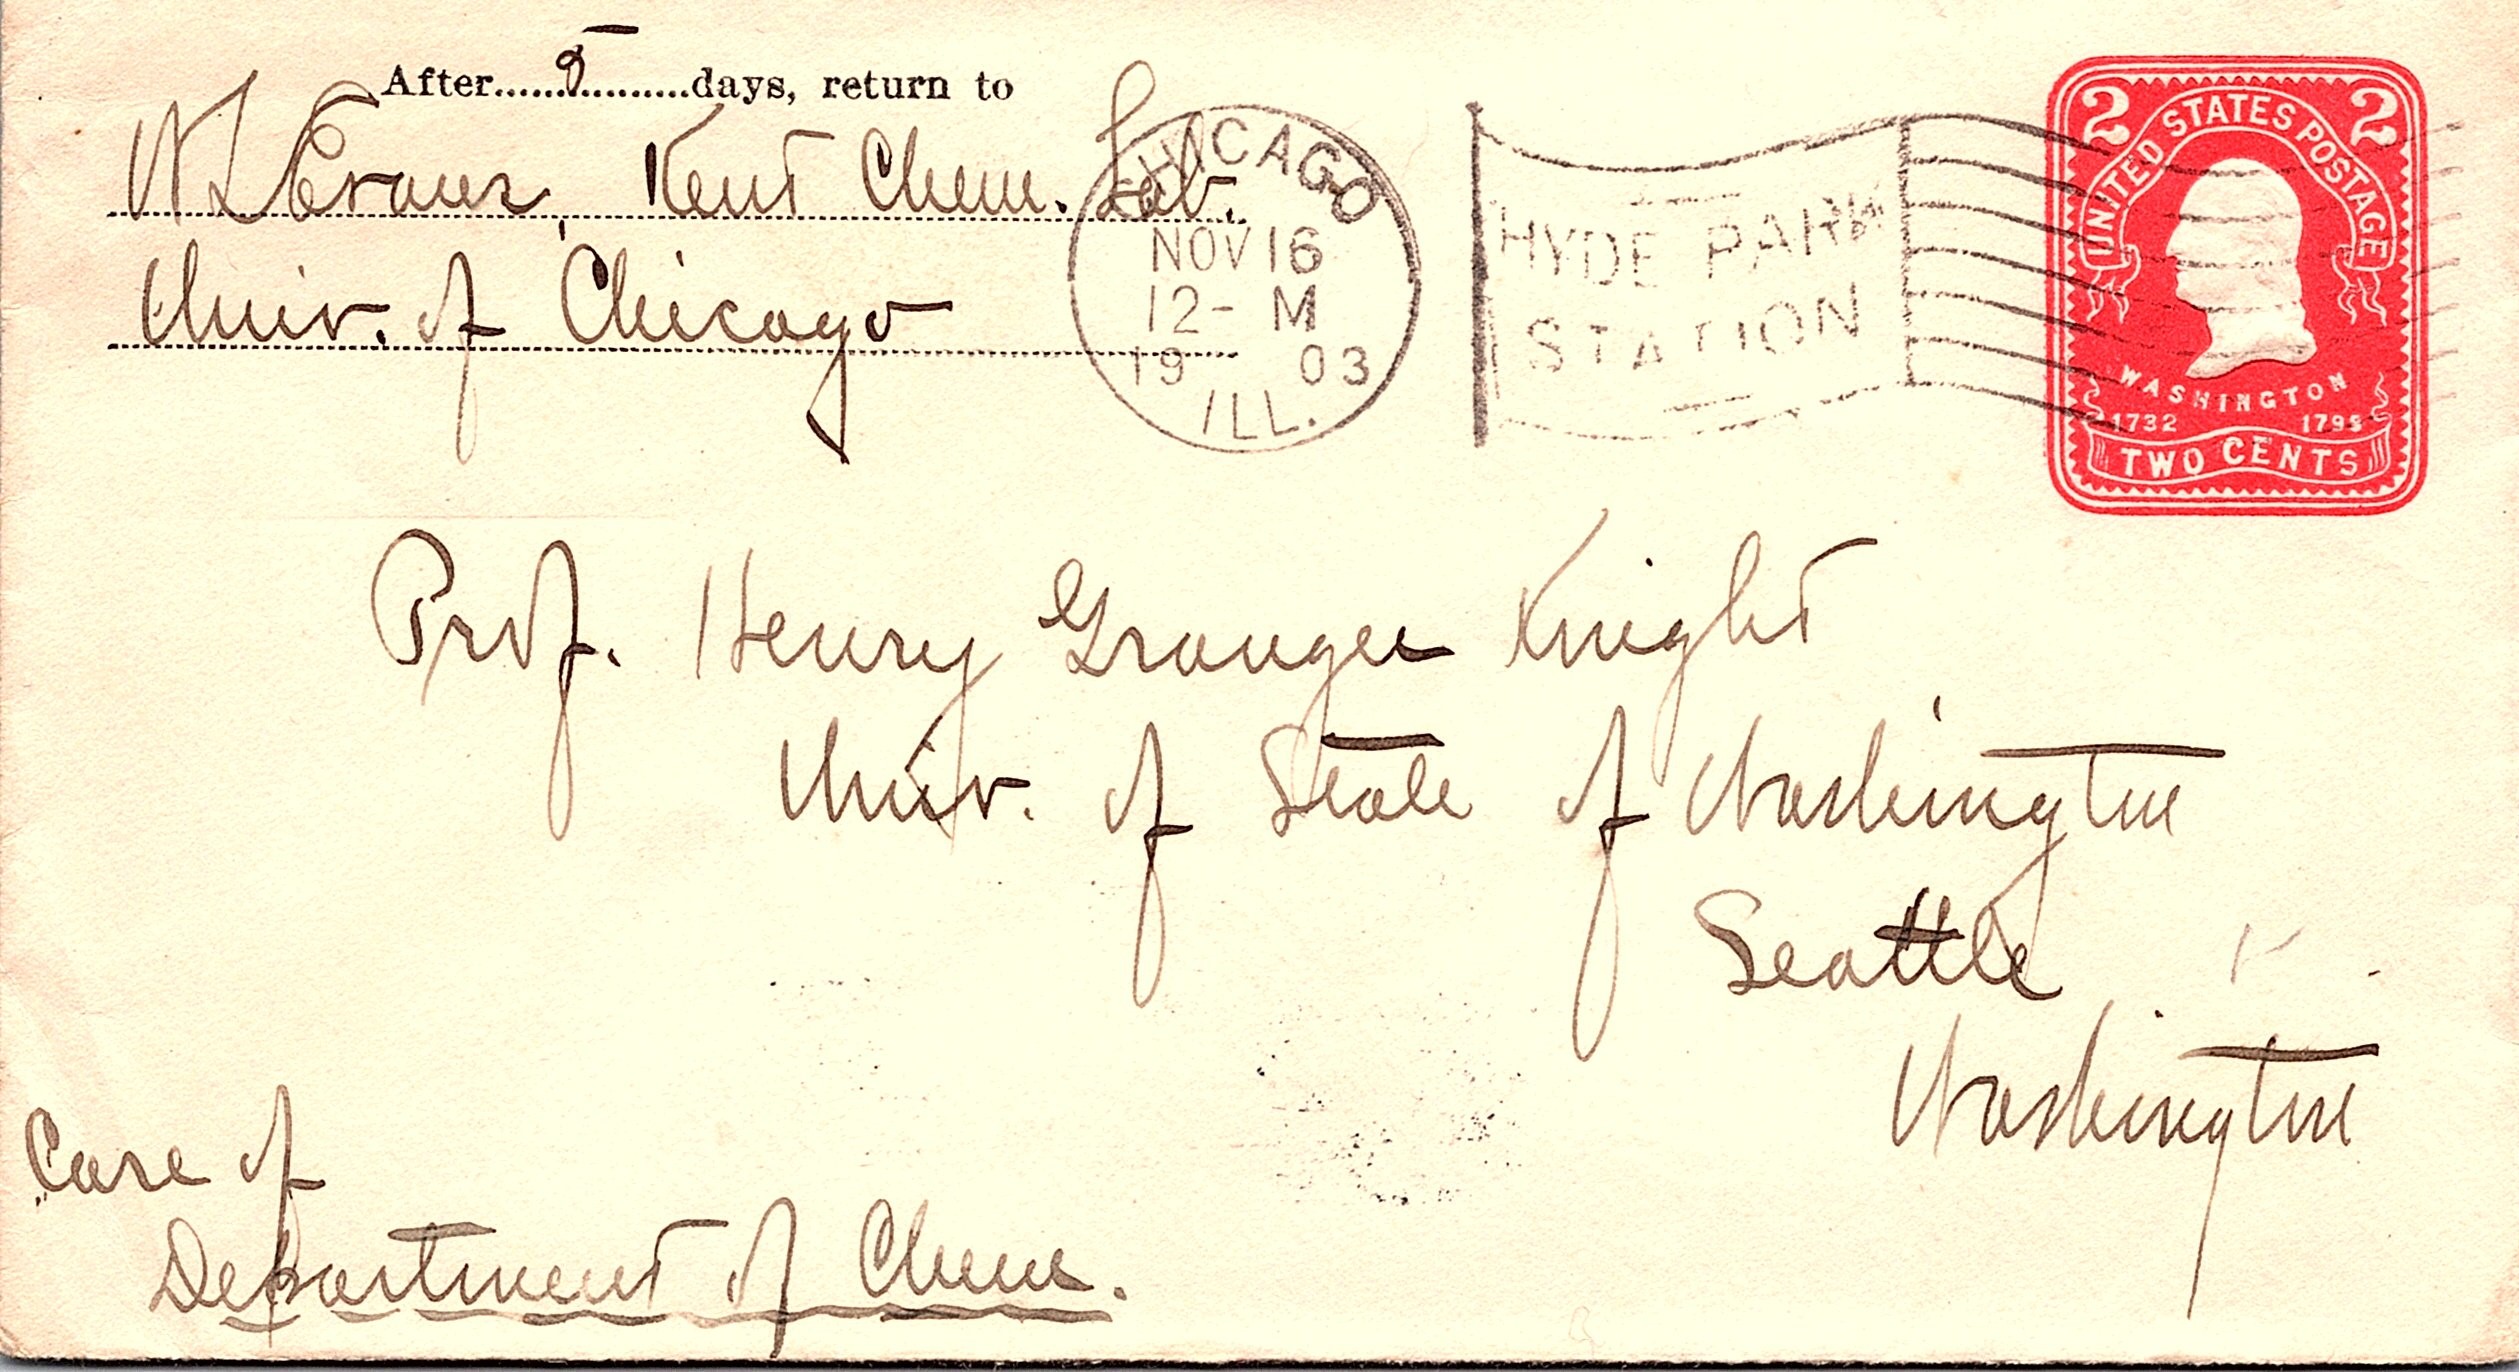 After......5.........days, return to
W L Evans, Kent Chem. Lab.
Univ. of Chicago
CHICAGO
NOV 16
12- M
19 03
ILL.
HYDE PARK
STATION
2 2
UNITED STATES POSTAGE
WASHINGTON
1732 1799
TWO CENTS
Prof. Henry Granger Knight
Univ. of State of Washington
Seattle
Washington
Care of
Department of Chem.